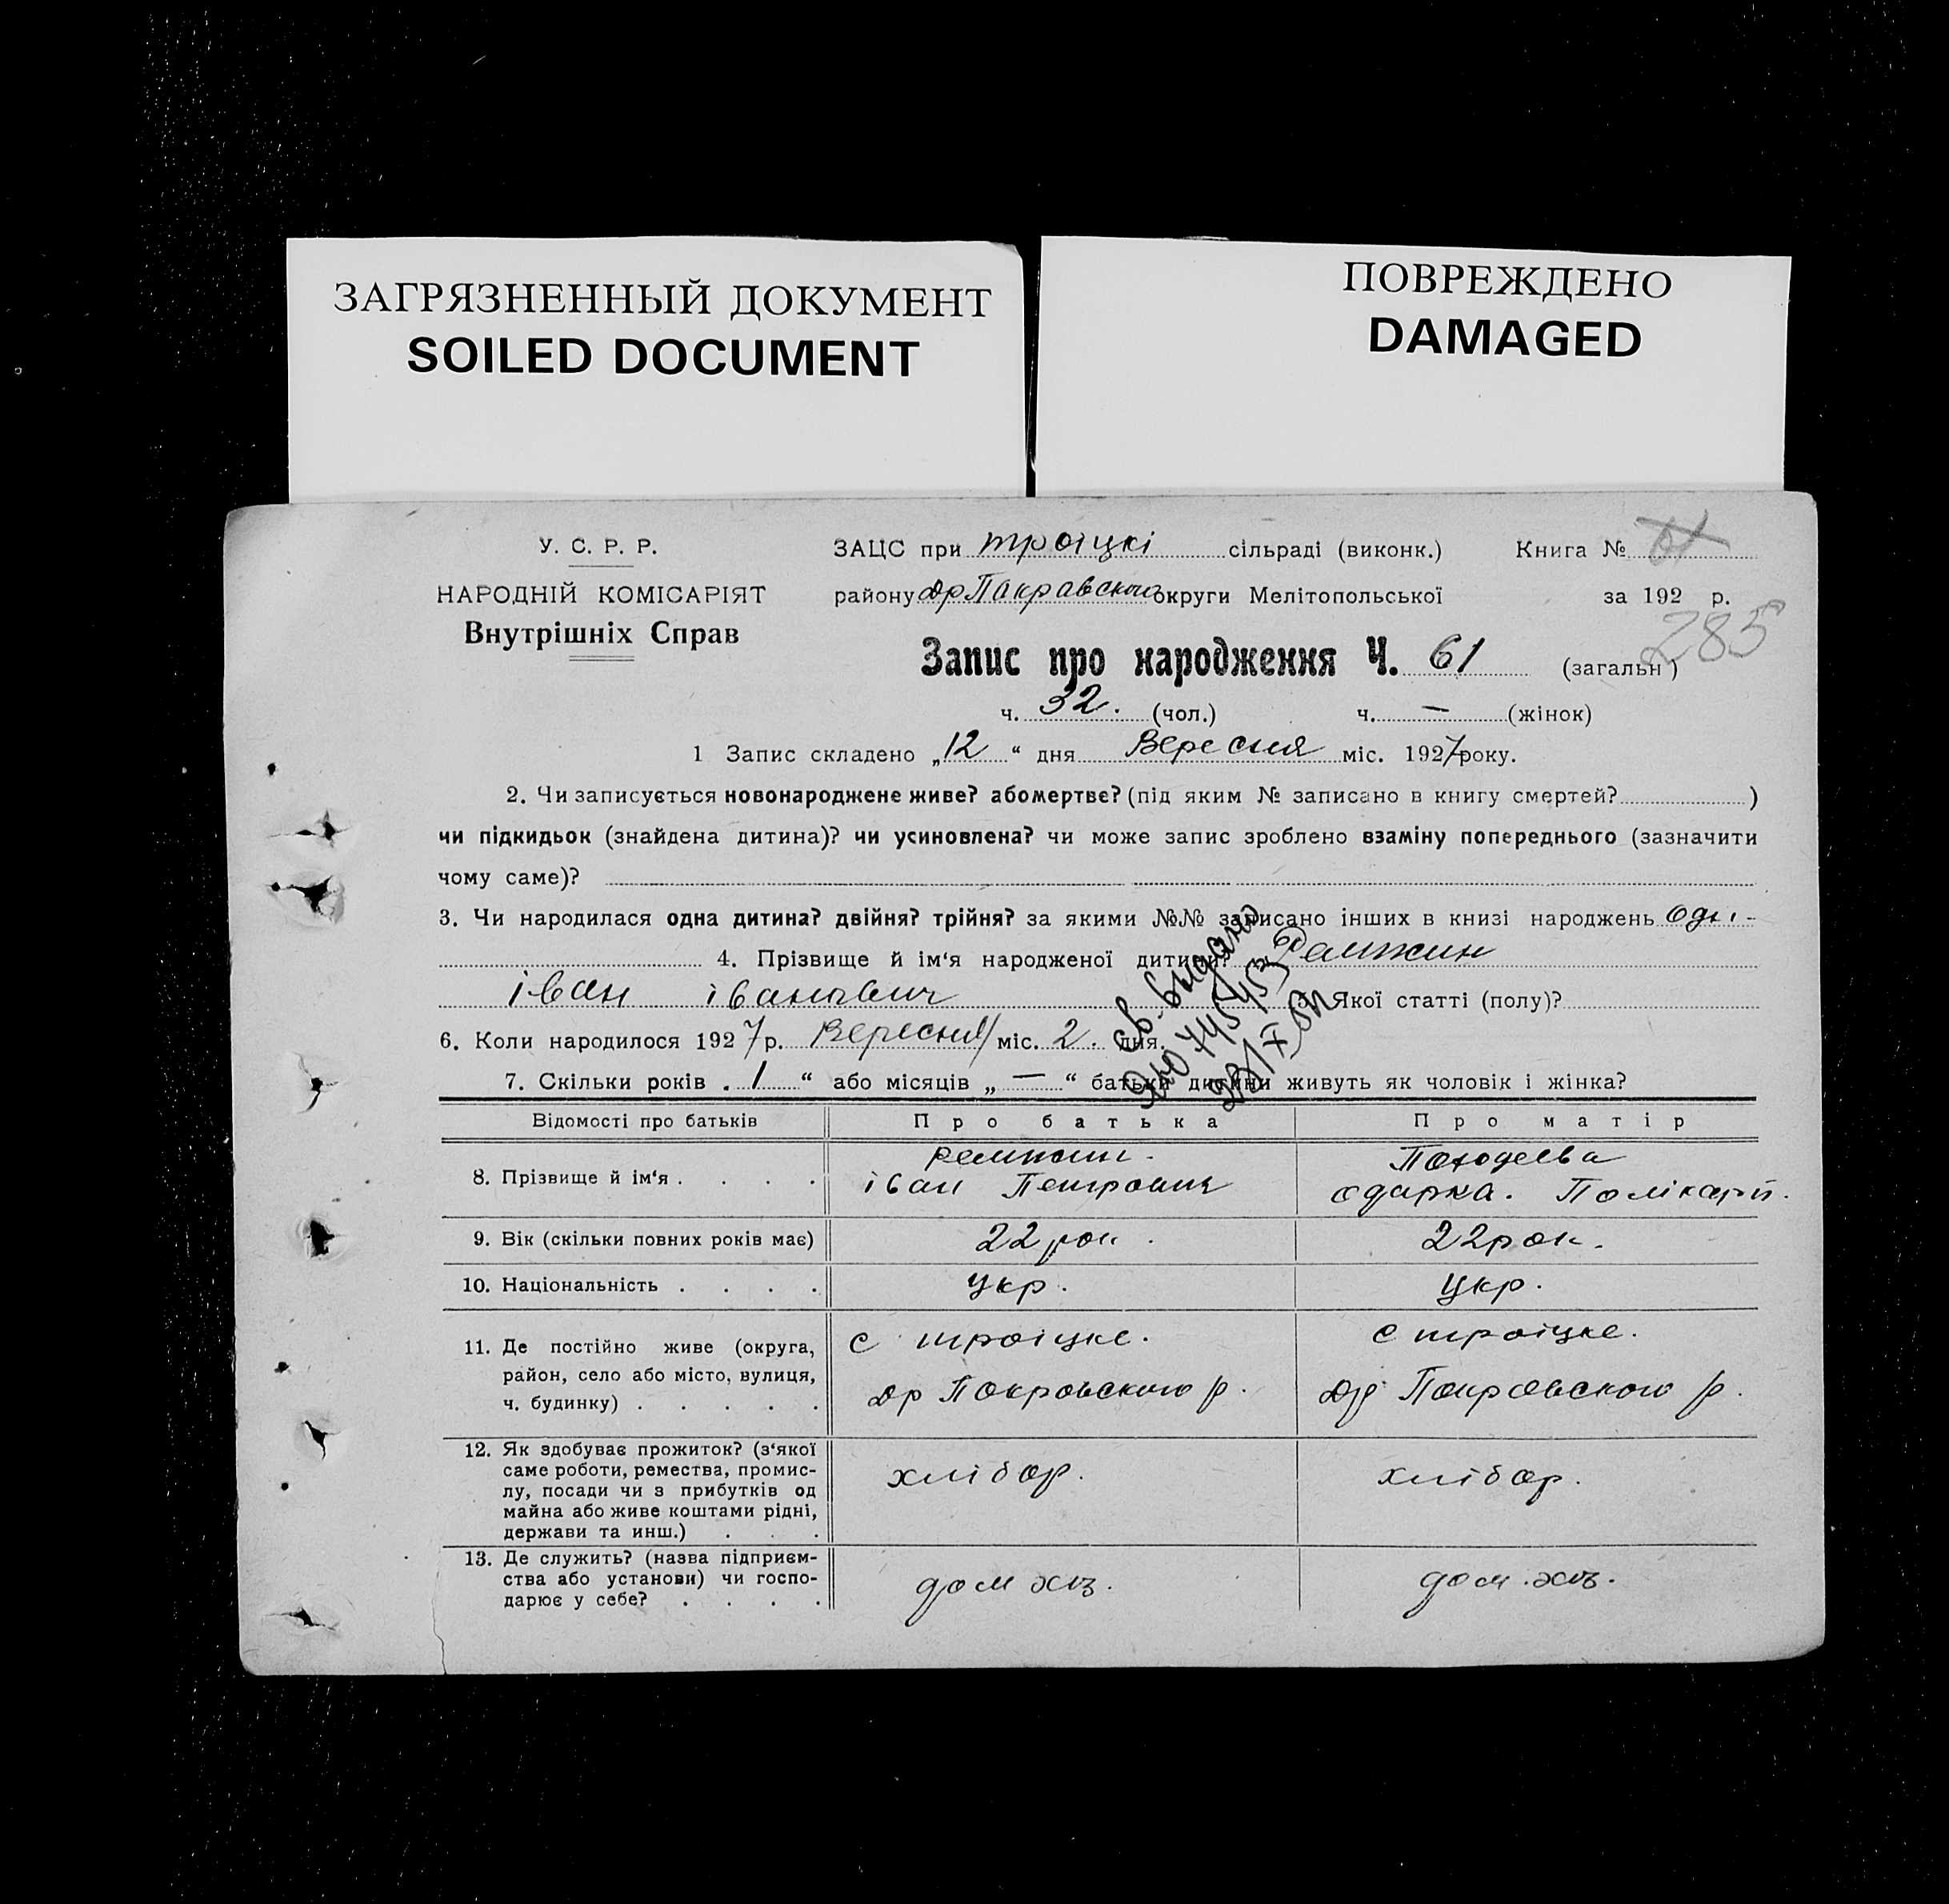 ЗАГРЯЗНЕННЫЙ ДОКУМЕНТ
SOILED DOCUMENT
ПОВРЕЖДЕНО
DAMAGED
У. С. Р. Р.
НАРОДНІЙ КОМІСАРІЯТ
Внутрішніх Справ
ЗАЦС при троіцкі сільраді (виконк.) Книга №
району др Пакравского округи Мелітопольської за 192 р.
285
Запис про народження Ч. 61 (загальн)
ч. 32. (чол.) ч. — (жінок)
1 Запис складено „12“ дня Вересня міс. 1927 року.
2. Чи записується новонароджене живе? або мертве? (під яким № записано в книгу смертей? )
чи підкидьок (знайдена дитина)? чи усиновлена? чи може запис зроблено взаміну попереднього (зазначити
чому саме)?
3. Чи народилася одна дитина? двійня? трійня? за якими №№ записано інших в книзі народжень
4. Прізвище й ім‘я народженої дитини? Ремжин
іван іванович 5. Якої статті (полу)?
6. Коли народилося 1927 р. Вересня міс. 2. дня.
7. Скільки років „1“ або місяців „—“ батьки дитини живуть як чоловік і жінка?
св. выдано
745453
Відомості про батьків Про батька Про матір
8. Прізвище й ім‘я . . . . Ремжин. іван Петрович одарка. Полікарп.
9. Вік (скільки повних років має) 22 рок. 22 рок.
10. Національність . . . . укр. укр.
11. Де постійно живе (округа, с троіцке. с троіцке.
район, село або місто, вулиця,
ч. будинку) . . . . . др Покровского р. др Покровского р.
12. Як здобуває прожиток? (з‘якої
саме роботи, ремества, промис-
лу, посади чи з прибутків од хлібор. хлібор.
майна або живе коштами рідні,
держави та инш.) . . .
13. Де служить? (назва підприєм-
ства або установи) чи госпо- дом хоз. дом. хоз.
дарює у себе? . . . .